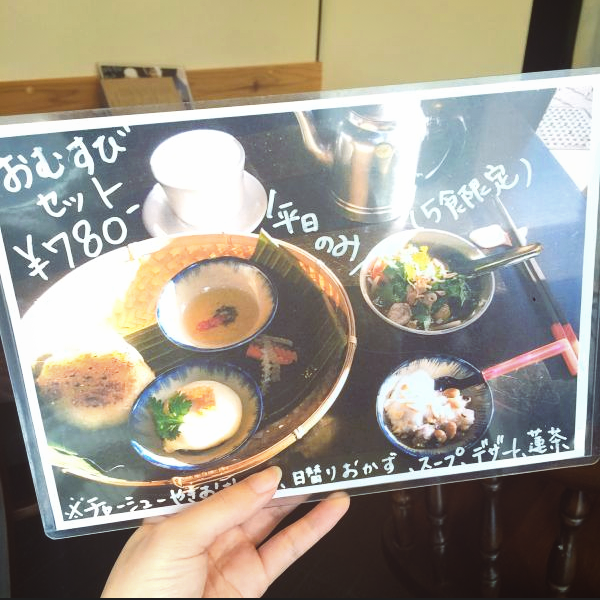 おむすび
セット
¥780-
平日
のみ
(5食限定)
※チャーシューやきおにぎ
、日替りおかず、スープ、デザート、蓮茶